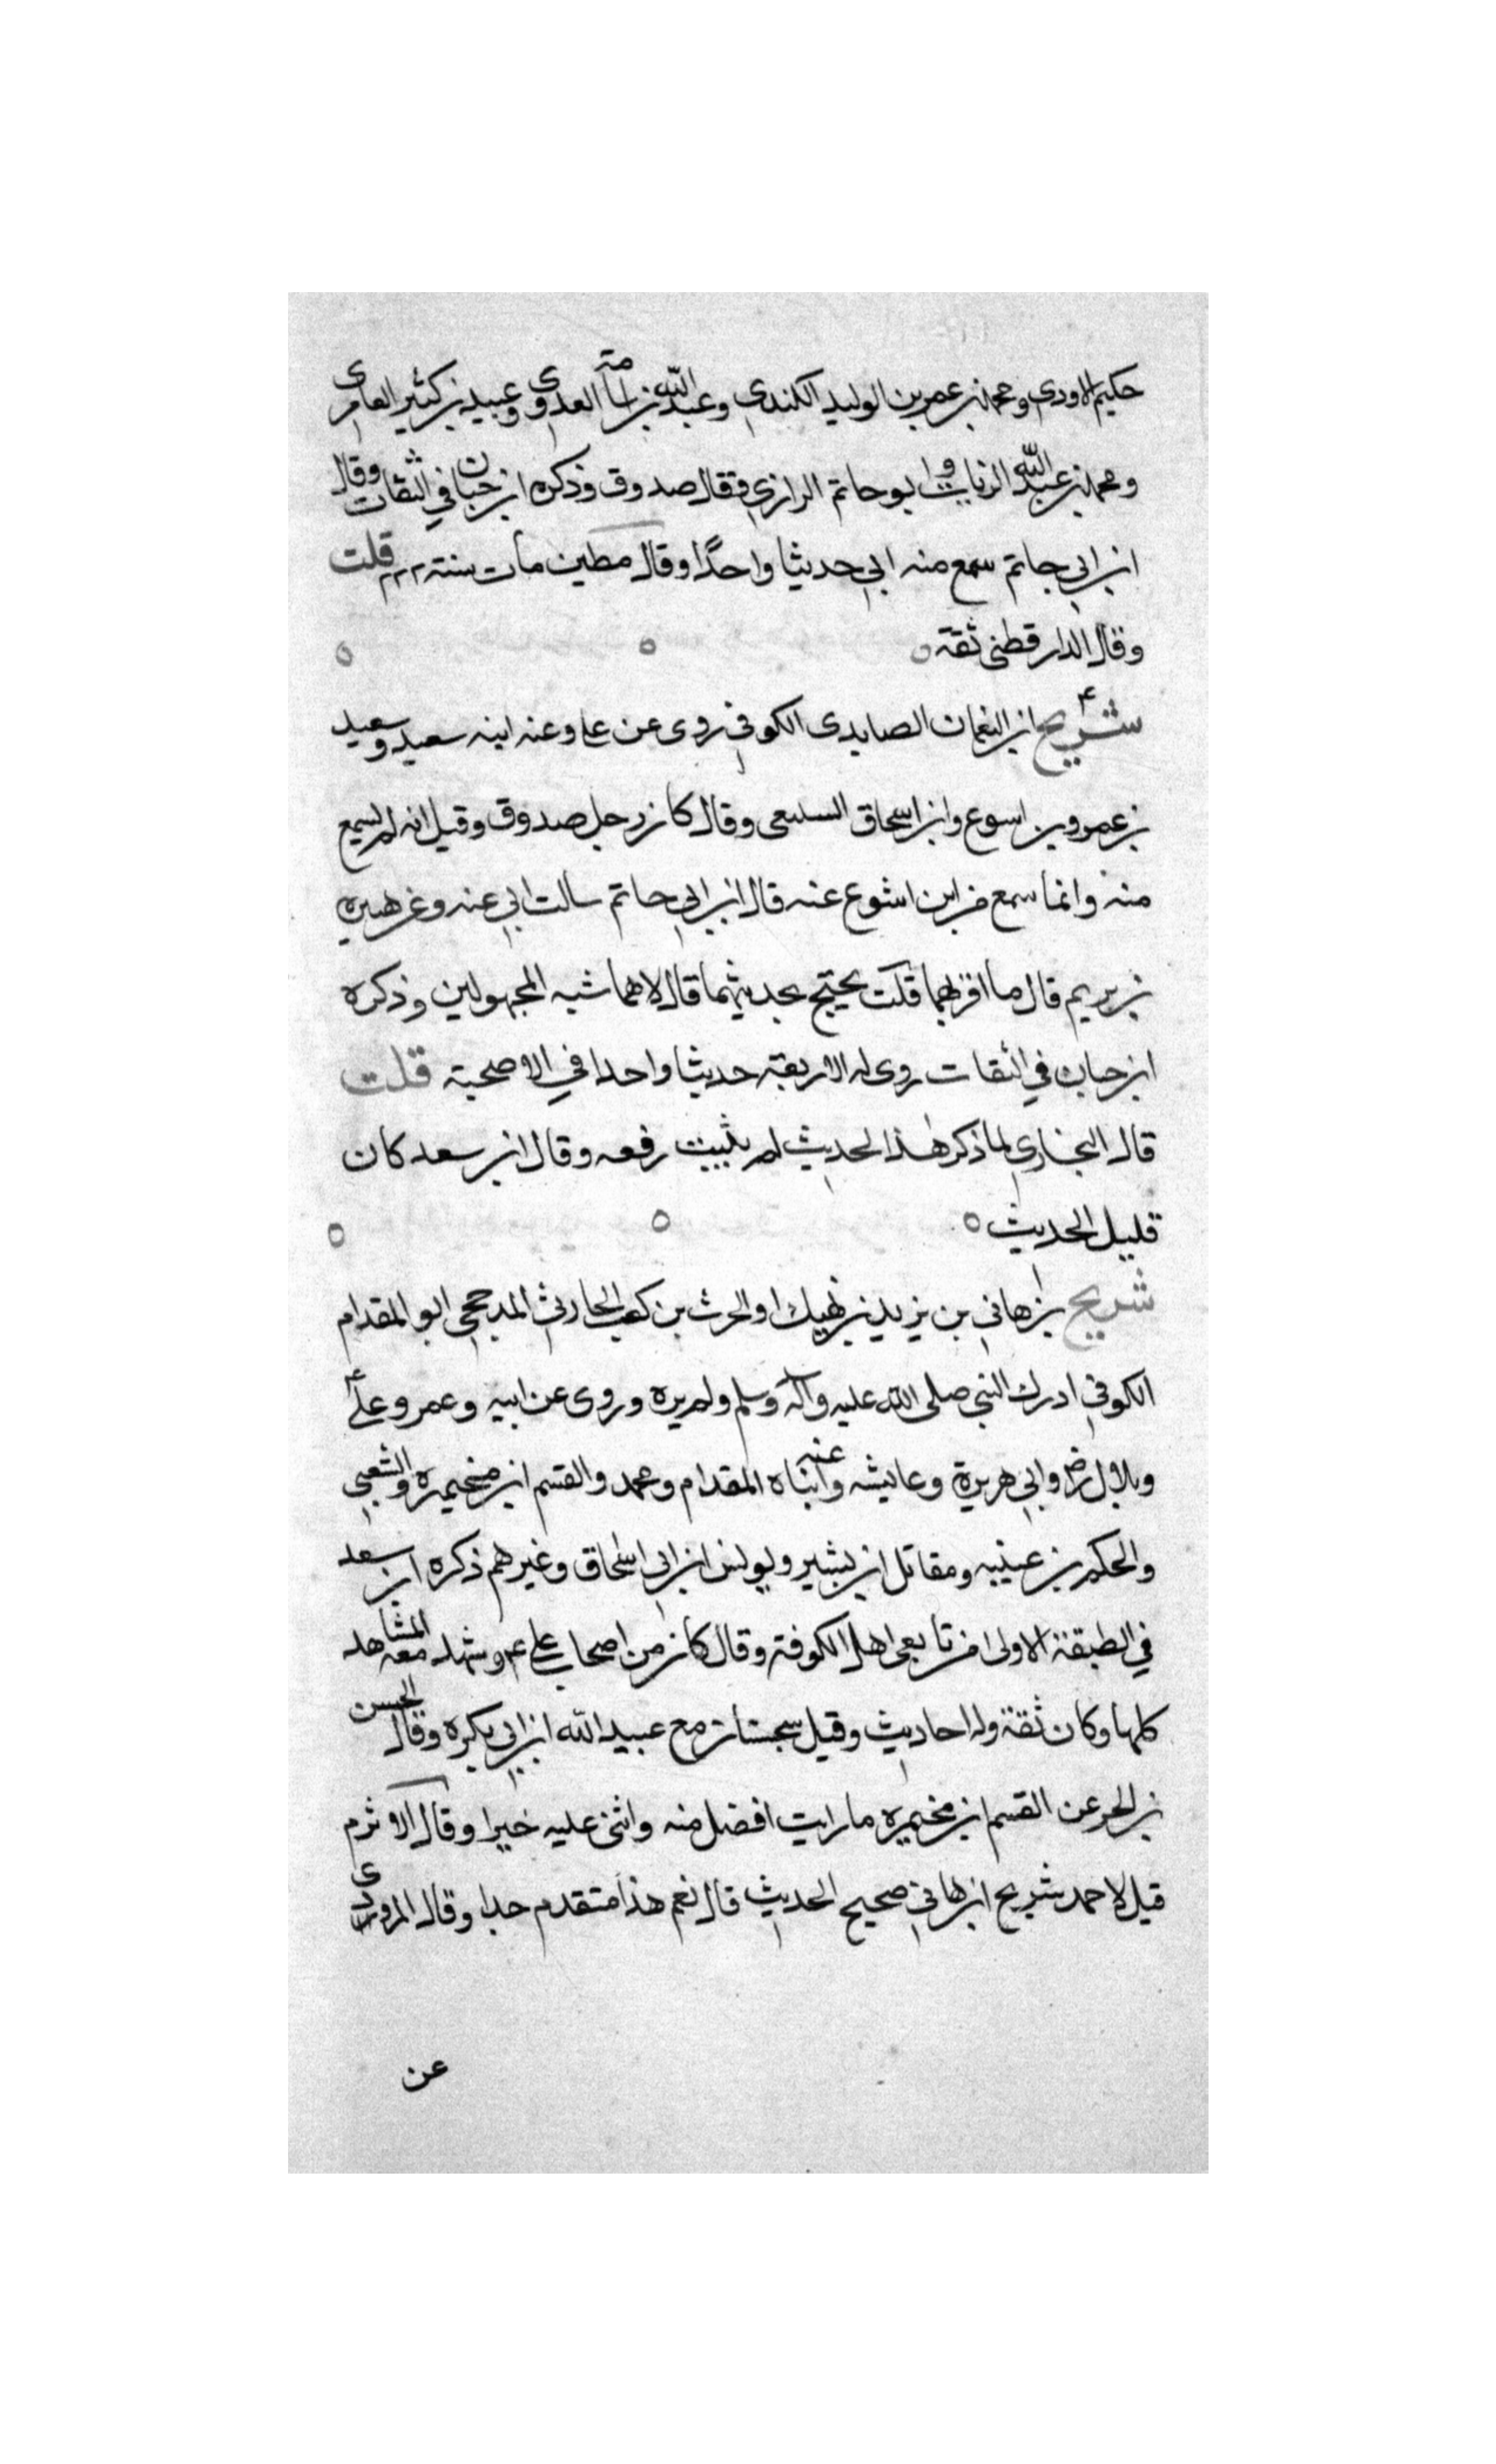 حكيم الاودي ومحمد بن عمر بن الوليد الكندي وعبد الله بن اسامة العدوي وعبيد بن كثير العامري
ومحمد بن عبد الله الزيات وابو حاتم الرازي وقال صدوق وذكره ابن حبان في الثقات وقال
ابن ابي حاتم سمع منه ابي حديثا واحدًا وقال مطين مات سنة ٢٢٢ قلت
وقال الدارقطني ثقة
شريح ابن النعمان الصايدى الكوفي روى عن على وعنه ابنه سعيد وسعيد
بن عمرو بن اسوع وابن اسحاق السبيعى وقال كان رجل صدوق وقيل انه لم يسمع
منه وانما سمع من ابن اشوع عنه قال ابن ابي حاتم سالت ابي عنه وعن هبيره
بن يريم قال ما اقربهما قلت يحتج بحديثهما قال لا هما شبه المجهولين وذكره
ابن حبان في الثقات روى له الاربعة حديثا واحدا في الاضحية قلت
قال البخاري لما ذكر هذا الحديث لم يثبت رفعه وقال ابن سعد كان
قليل الحديث
شريح بن هاني بن يزيد بن نهيك او الحرث بن كعب الحارثي المدحجي ابو المقدام
الكوفي ادرك النبي صلى الله عليه وآله وسلم ولم يره وروى عن ابيه وعمر وعلي
وبلال رض وابي هريرة وعايشه وعنه ابناه المقدام ومحمد والقسم ابن مخيمره والشعبي
والحكم بن عيينه ومقاتل ابن بشير ويونس ابن ابي اسحاق وغيرهم ذكره ابن سعد
في الطبقة الاولى من تابعى اهل الكوفة وقال كان من اصحاب علي ع وشهد معه المشاهد
كلها وكان ثقة وله احاديث وقيل سجستان مع عبيد الله ابن ابي بكره وقال الحسن
بن الحر عن القسم ابن مخيمره ما رايت افضل منه واثنى عليه خيرا وقال الاثرم
قيل لاحمد شريح ابن هاني صحيح الحديث قال نعم هذا متقدم جدا وقال المروذى
عن